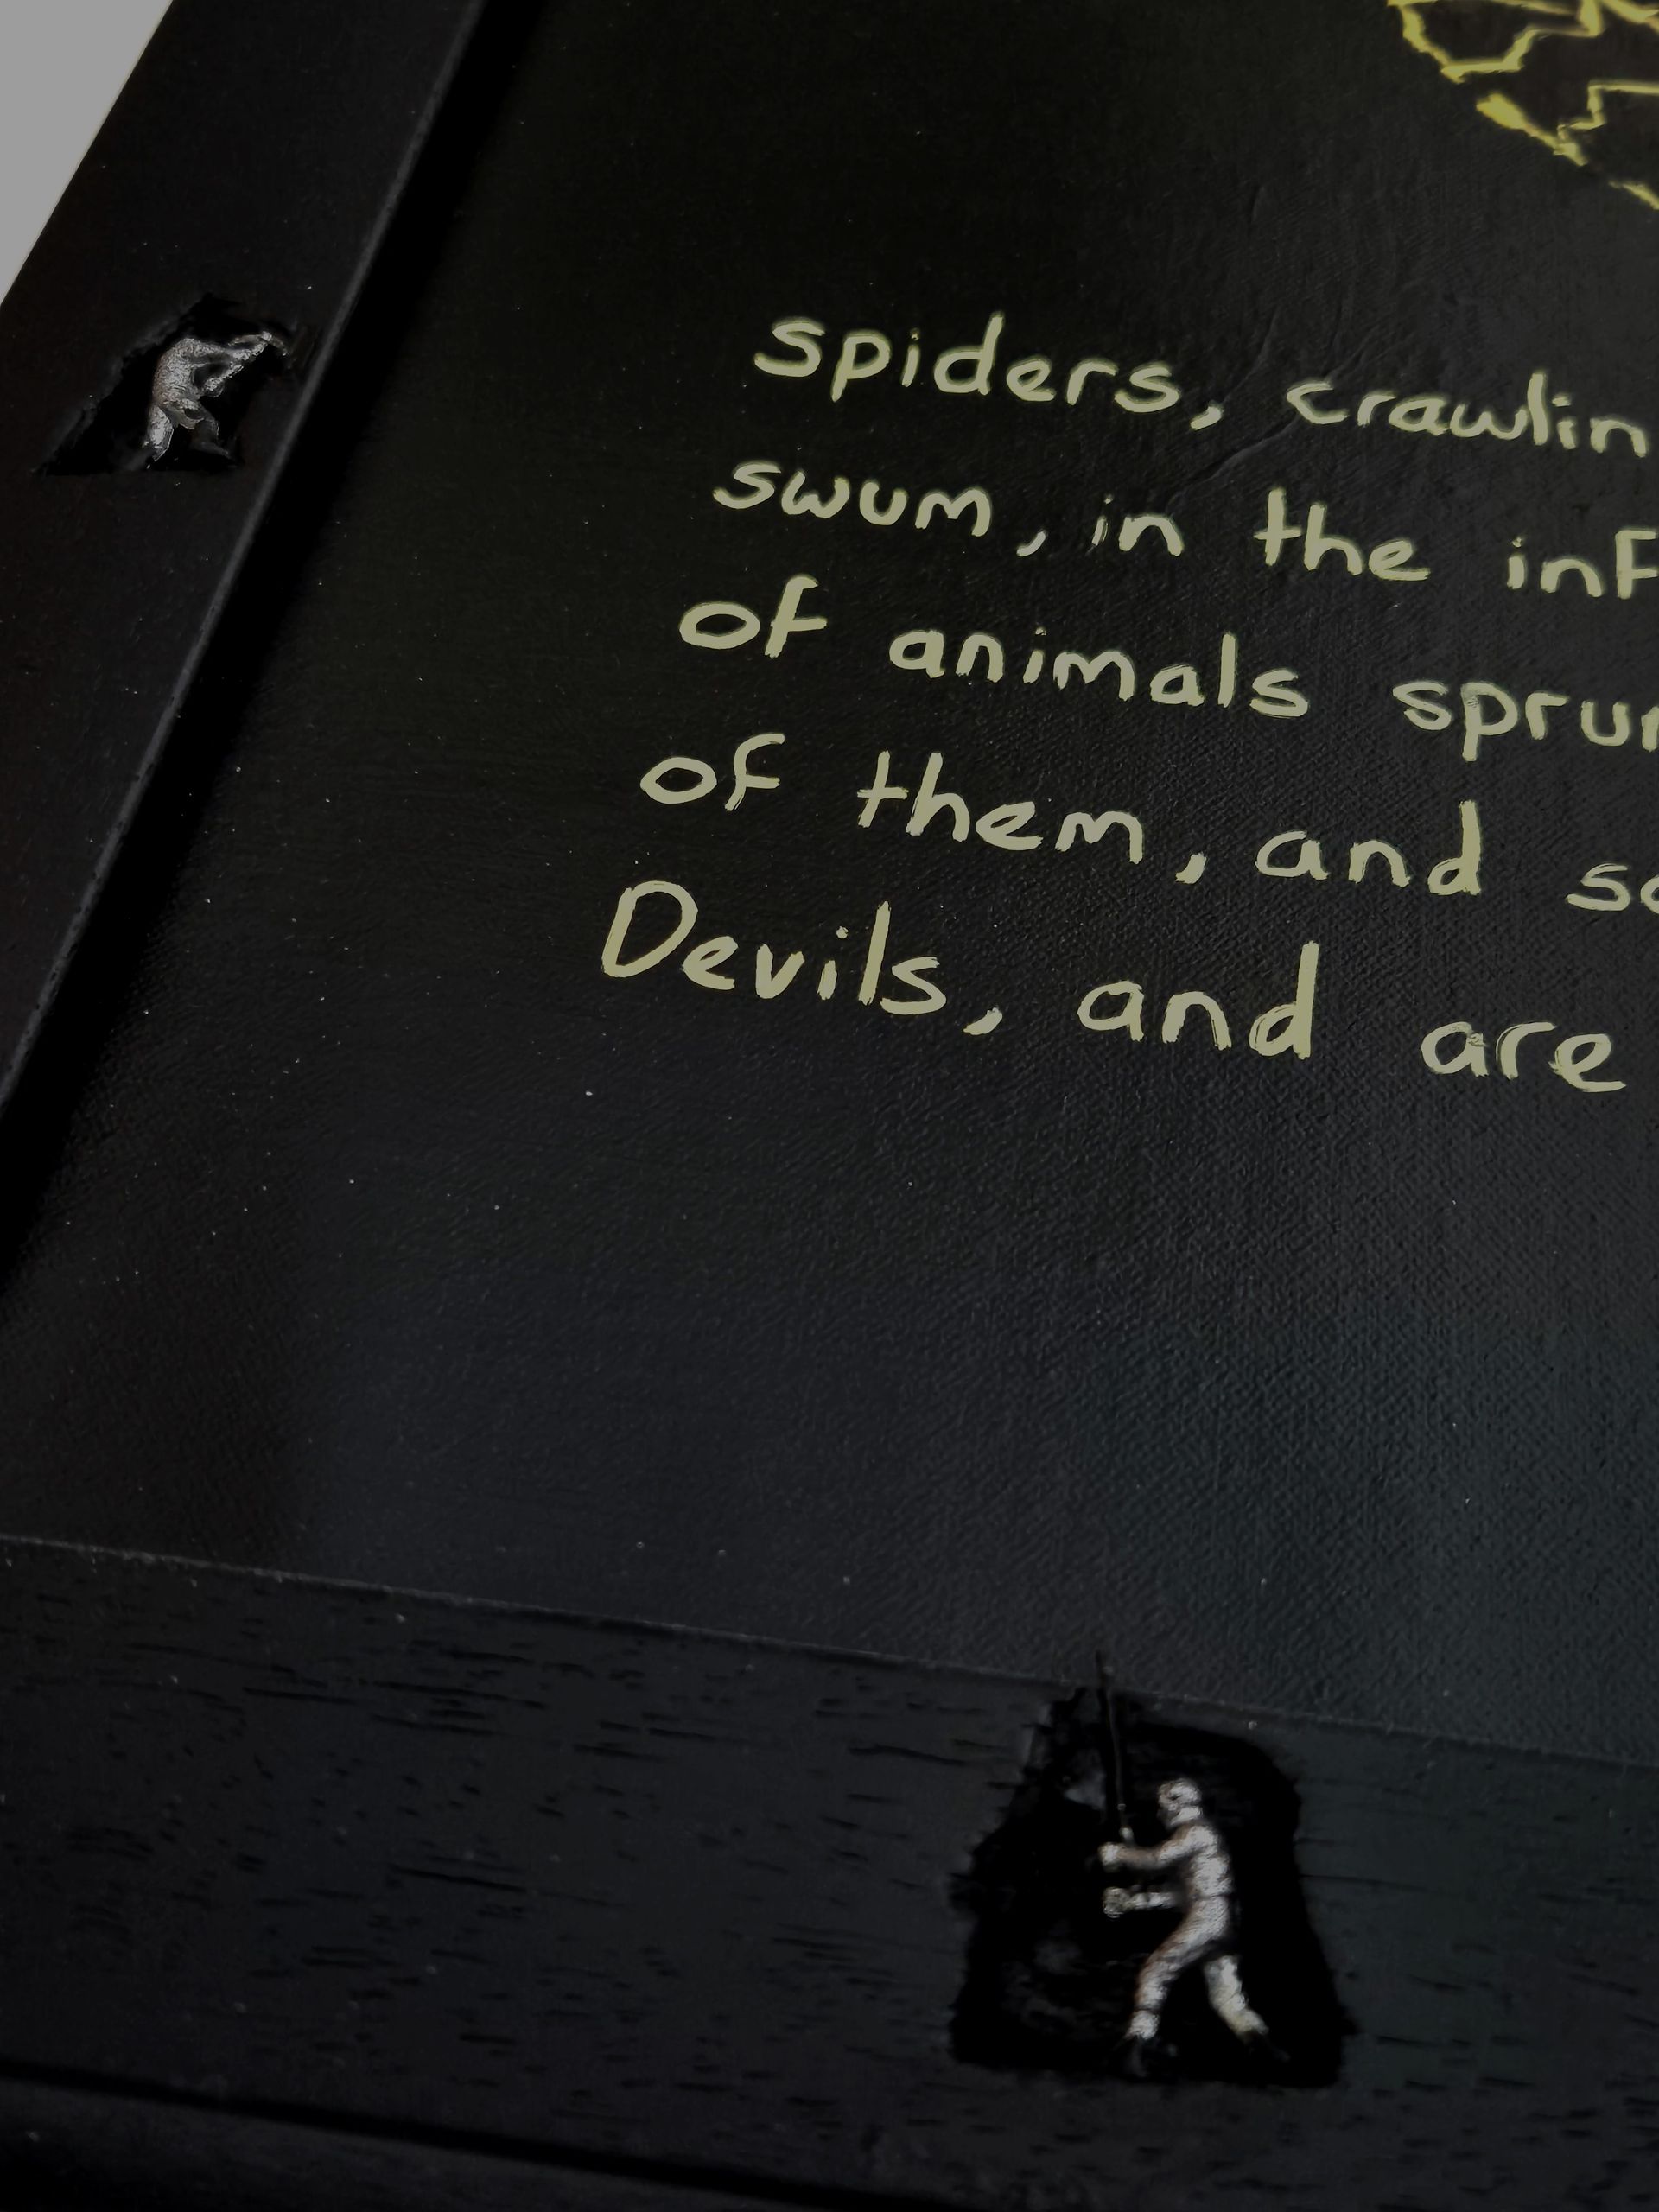 spiders, crawlin
swum, in the inf
of animals sprun
of them, and so
Devils, and are